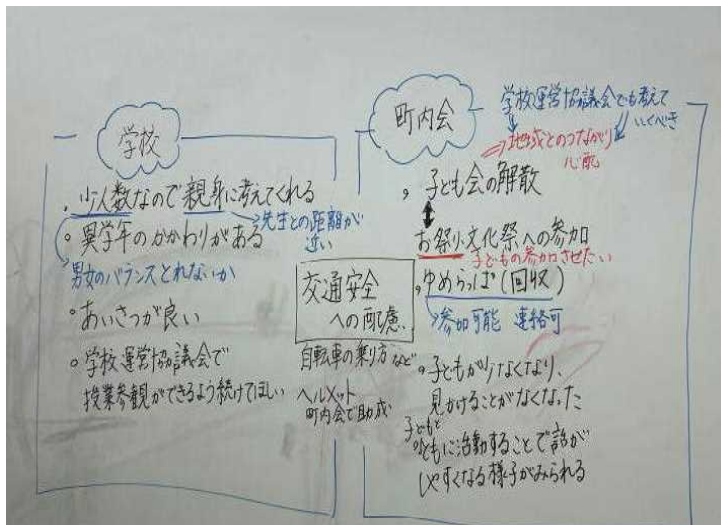 学校
・少人数なので親身に考えてくれる
→先生との距離が
近い
○異学年のかかわりがある
男女のバランスとれないか
○あいさつが良い
○学校運営協議会で
授業参観ができるよう続けてほしい
交通安全
への配慮
自転車の乗り方など
ヘルメット
町内会で助成
町内会
学校運営協議会でも考えて
いくべき
⇒地域とのつながり
心配
・子ども会の解散
お祭り・文化祭への参加
子どもの参加させたい
・ゆめらっぱ(回収)
→参加可能 連絡可
○子どもが少なくなり、
見かけることがなくなった
子どもと
○ともに活動することで話が
しやすくなる様子がみられる